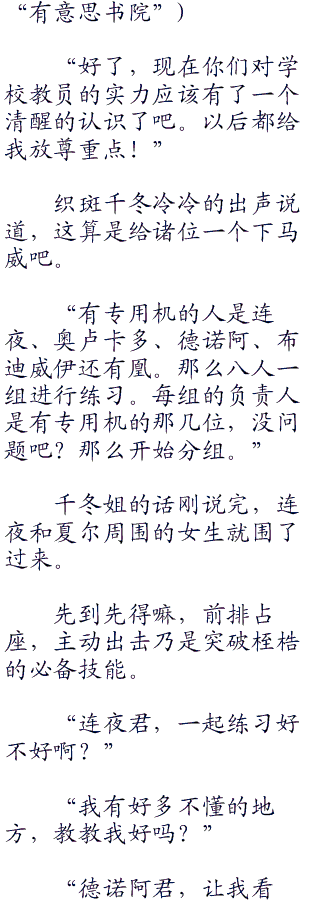 “有意思书院”）
“好了，现在你们对学
校教员的实力应该有了一个
清醒的认识了吧。以后都给
我放尊重点！”
织斑千冬冷冷的出声说
道，这算是给诸位一个下马
威吧。
“有专用机的人是连
夜、奥卢卡多、德诺阿、布
迪威伊还有凰。那么八人一
组进行练习。每组的负责人
是有专用机的那几位，没问
题吧？那么开始分组。”
千冬姐的话刚说完，连
夜和夏尔周围的女生就围了
过来。
先到先得嘛，前排占
座，主动出击乃是突破桎梏
的必备技能。
“连夜君，一起练习好
不好啊？”
“我有好多不懂的地
方，教教我好吗？”
“德诺阿君，让我看